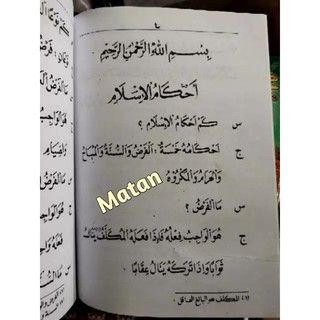 بِسْمِ اللّٰهِ الرَّحْمٰنِ الرَّحِيْمِ
أَحْكَامُ الْإِسْلَامِ
س كَمْ أَحْكَامُ الْإِسْلَامِ ؟
ج أَحْكَامُهُ خَمْسَةٌ : اَلْفَرْضُ وَالسُّنَّةُ وَالْمُبَاحُ
وَالْحَرَامُ وَالْمَكْرُوْهُ
س مَا الْفَرْضُ ؟
ج هُوَ الْوَاجِبُ فِعْلُهُ فَإِذَا فَعَلَهُ الْمُكَلَّفُ يَنَالُ
ثَوَابًا وَإِذَا تَرَكَهُ يَنَالُ عِقَابًا
المكلف هو البالغ العاقل
Matan